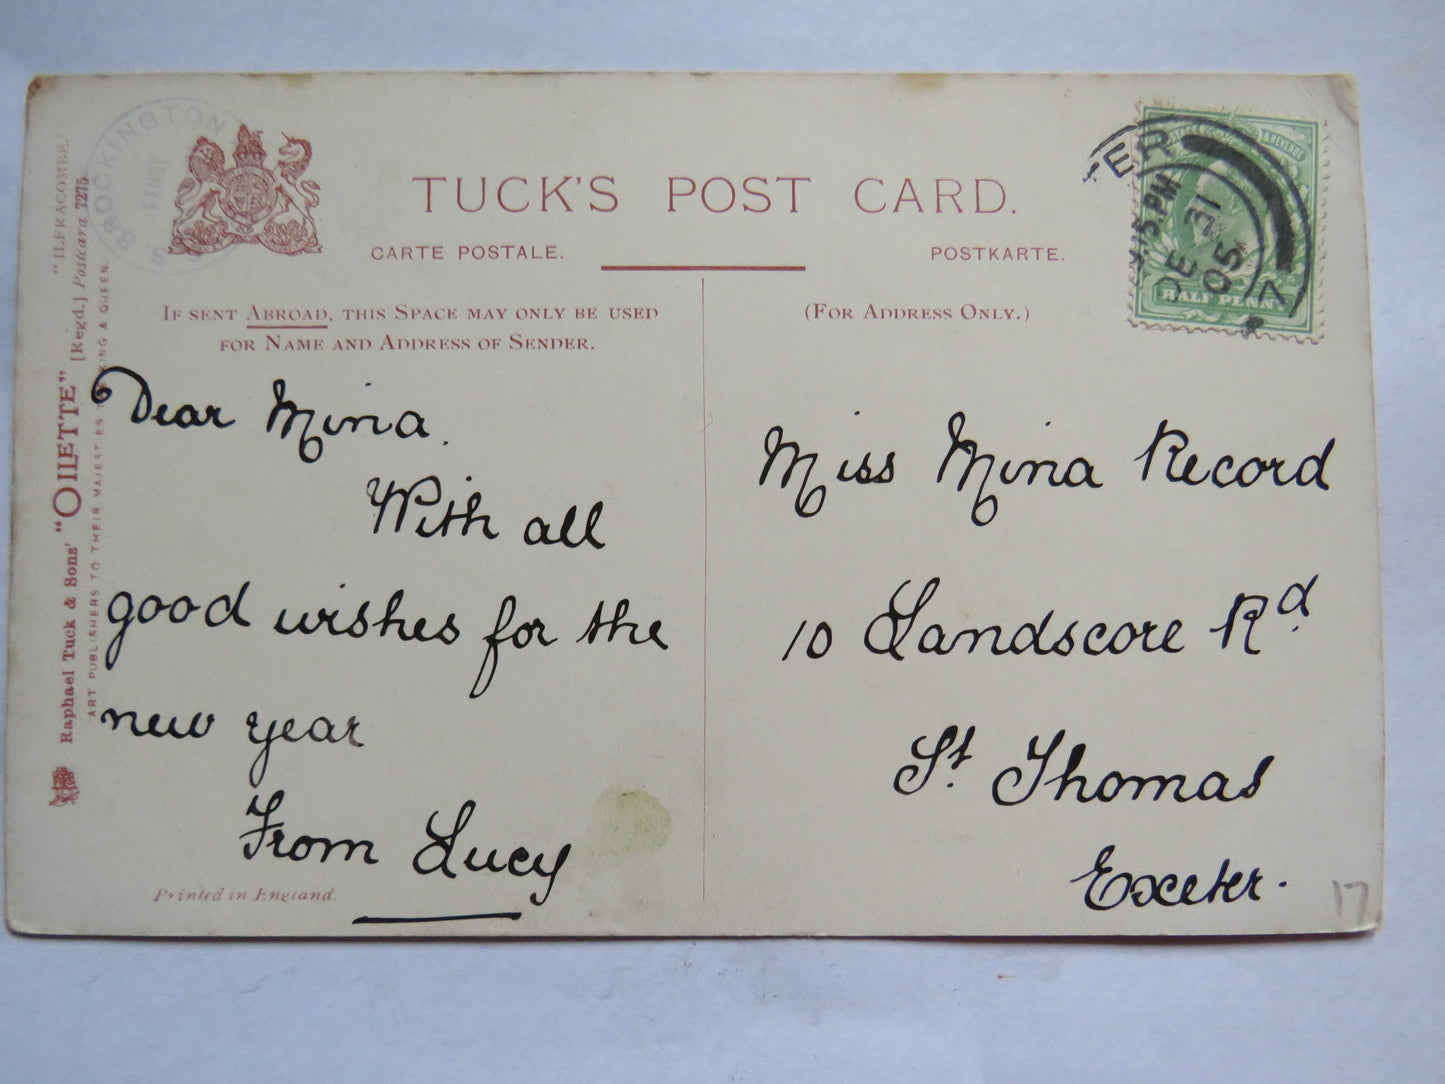 S. BROCKINGTON
FANCY
TUCK'S POST CARD.
CARTE POSTALE.
POSTKARTE.
"ILFRACOMBE."
Raphael Tuck & Sons' "OILETTE" [Regd.] Postcard 7275.
ART PUBLISHERS TO THEIR MAJESTIES THE KING & QUEEN.
IF SENT ABROAD, THIS SPACE MAY ONLY BE USED
FOR NAME AND ADDRESS OF SENDER.
Dear Mina.
With all
good wishes for the
new year
From Lucy
Printed in England.
(FOR ADDRESS ONLY.)
Miss Mina Record
10 Landscore Rd.
St. Thomas
Exeter.
17
& REVENUE
HALF PENNY
TER
15.PM
DE 31
05
7